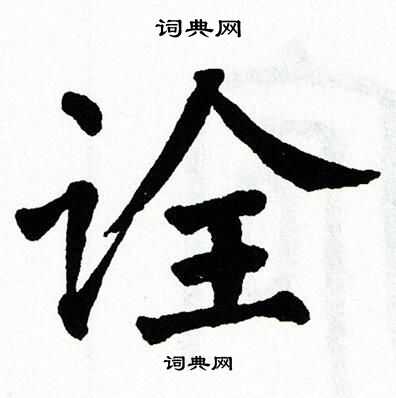 词典网
诠
词典网